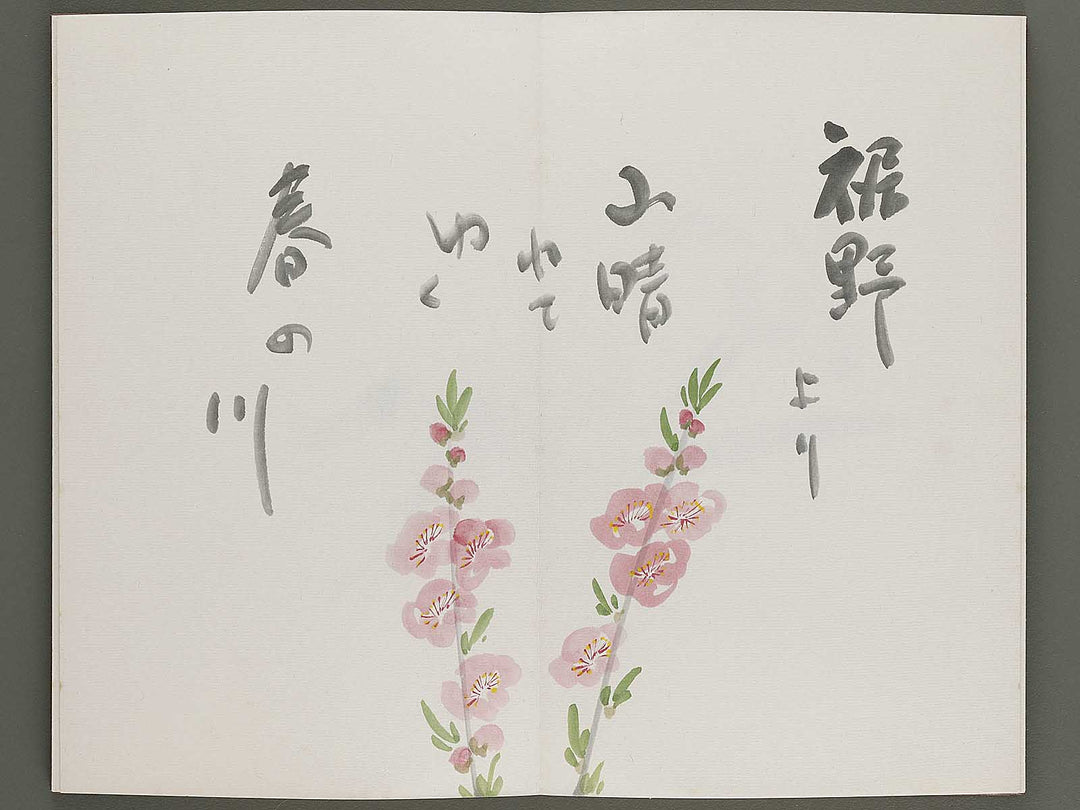 裾野より
山晴
れて
ゆく
春の川